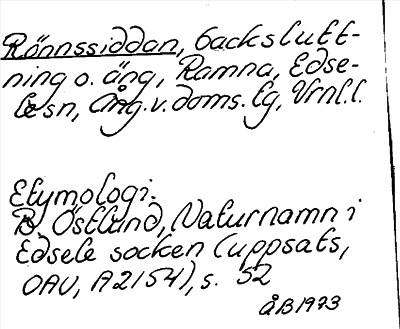 Rönnssiddan, backslutt-
ning o. äng, Ramna, Edse-
le sn, Ång.v.doms.tg, Vrnl.l.
Etymologi:
B. Östlund, Naturnamn i
Edsele socken (uppsats,
OAU, A2154), s. 52
ÅB1973